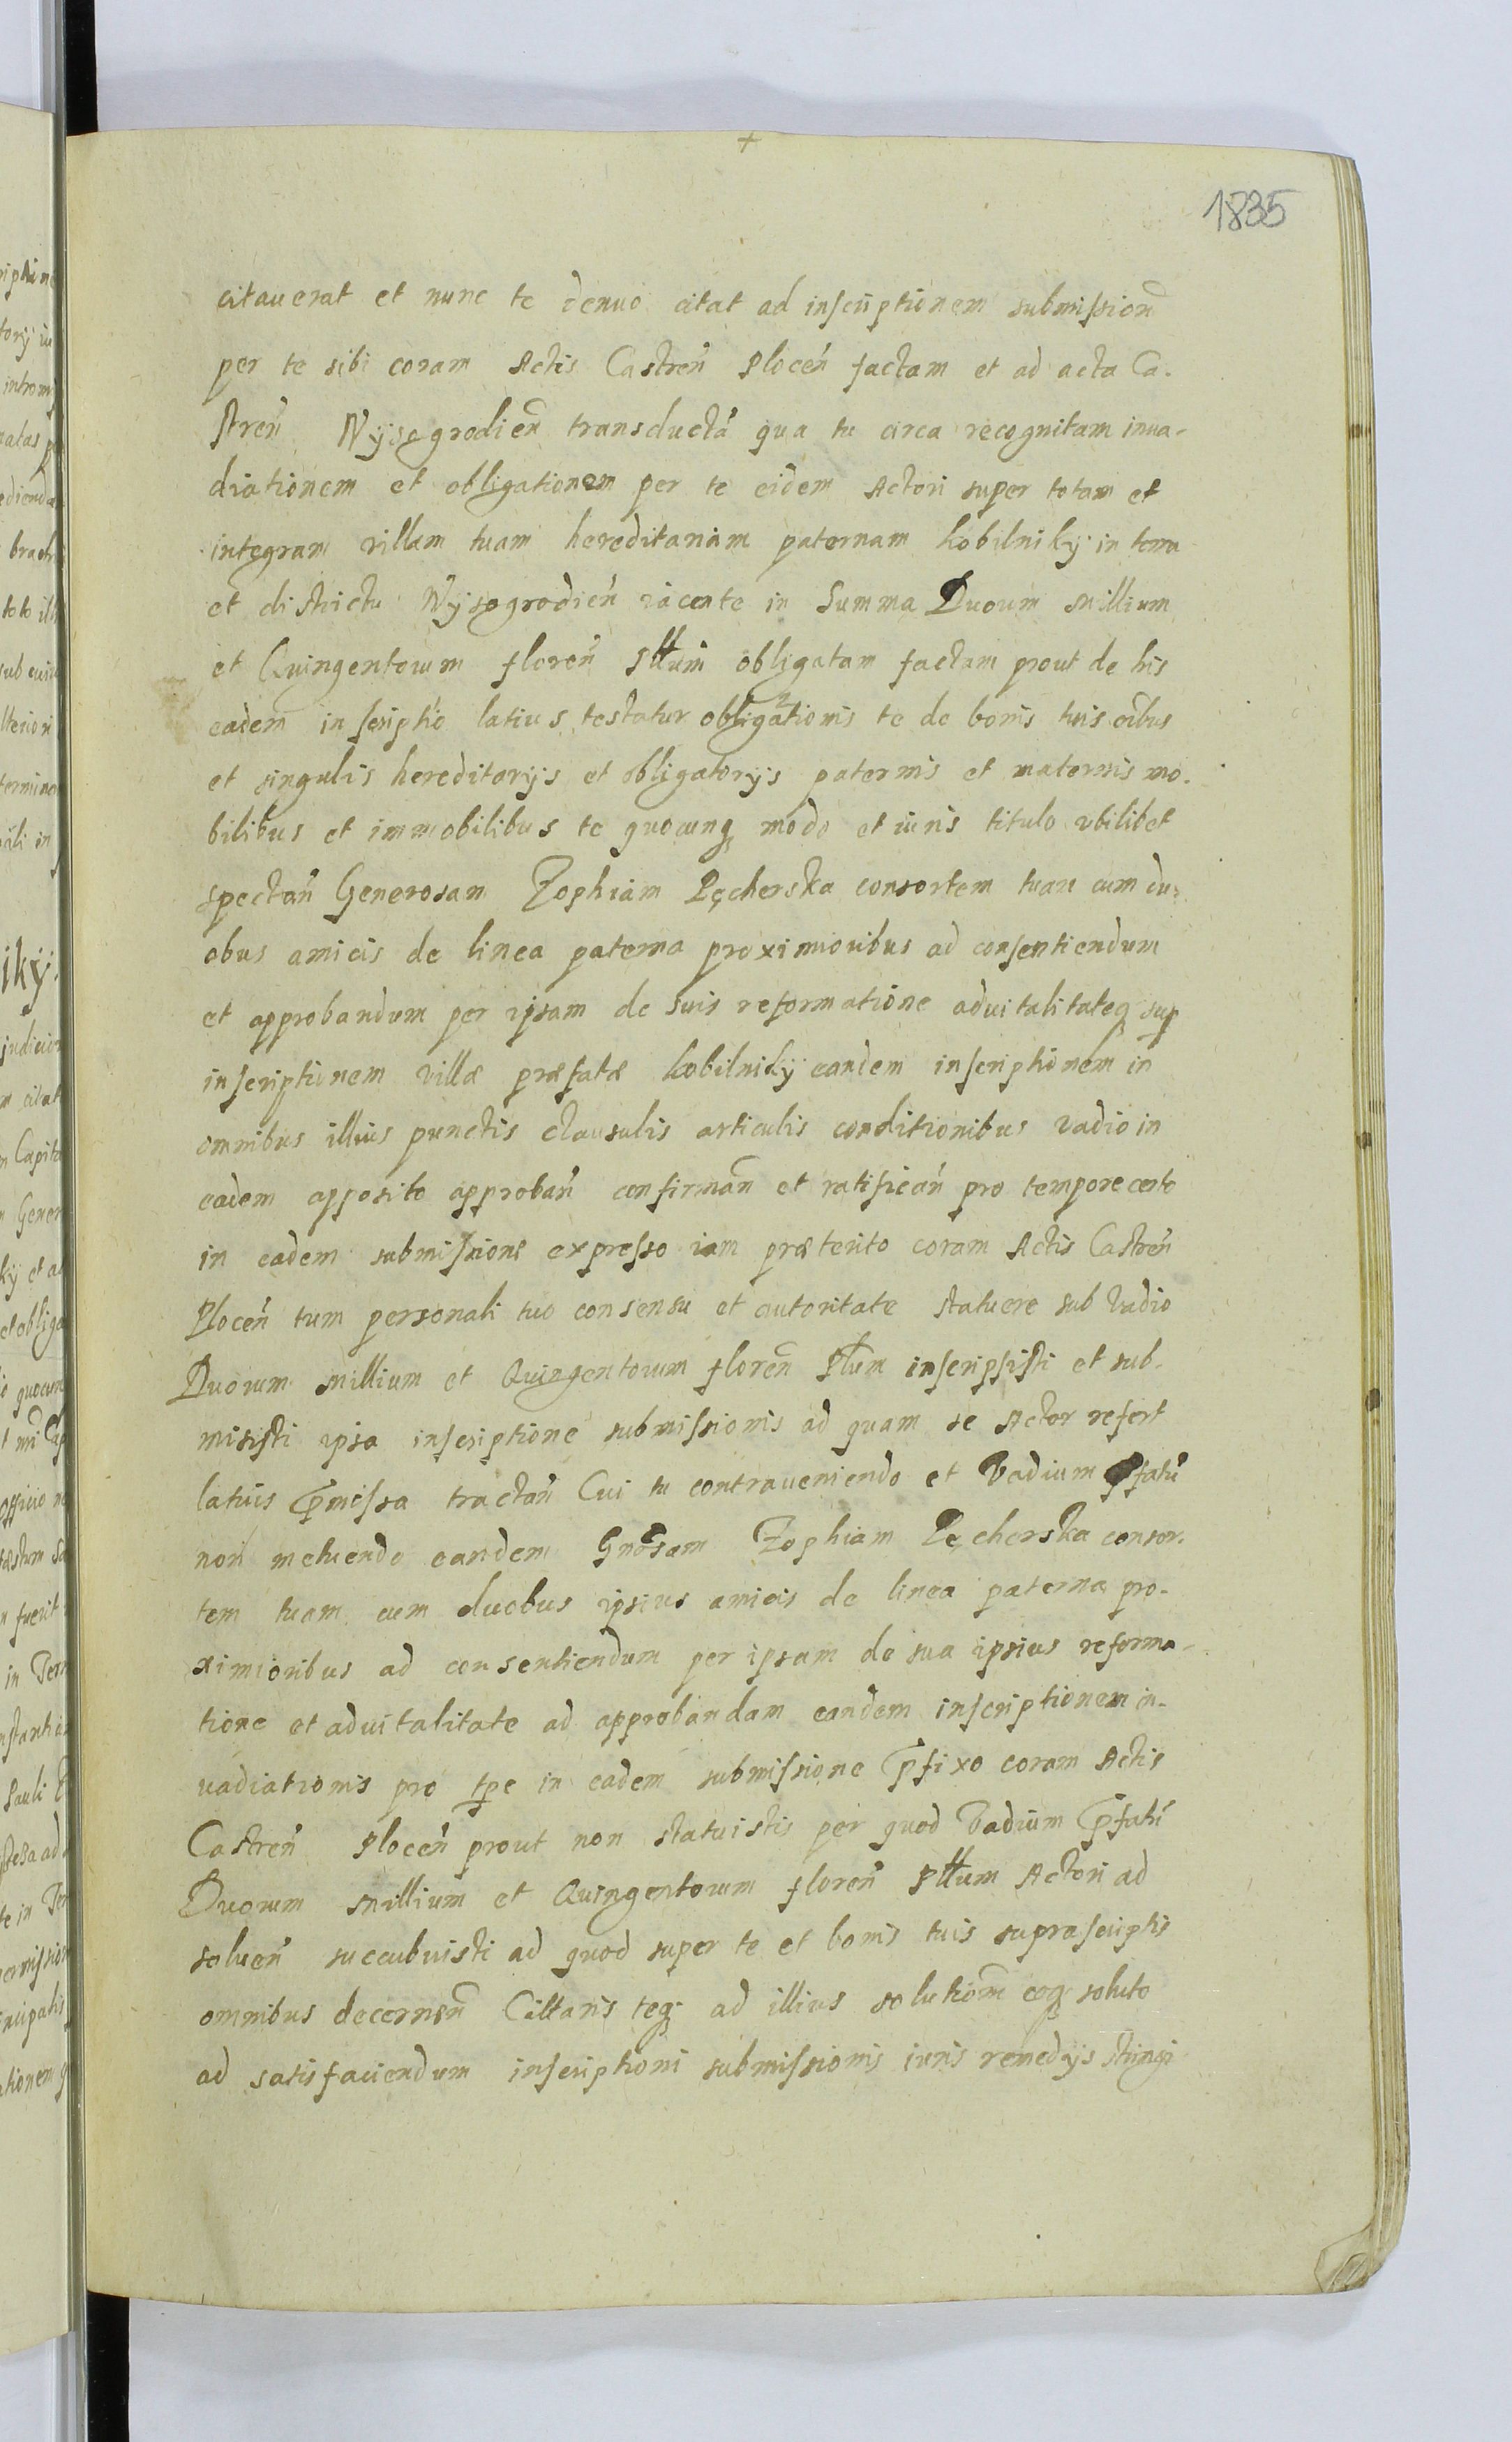 1835
citauerat et nunc te denuo citat ad inscriptionem submission̄
per te sibi coram Actis Castren̄ Plocen̄ factam et ad acta Ca-
stren̄ Wyssegrodien̄ transductā qua tu circa recognitam inua-
diationem et obligationem per te eidem Actori super totam et
integram villam tuam hereditariam paternam Kobilniky in terra
et districtu Wysegrodien̄ iacente in Summa Duorum Millium
et Quingentorum floren̄ Plłum obligatam factam prout de his
eadem inscriptio latius testatur obligationis te de bonis tuis oībus
et singulis hereditarijs et obligatorijs paternis et maternis mo-
bilibus et immobilibus te quocunq modo et iuris titulo vbilibet
spectan̄ Generosam Zophiam Pęcherska consortem tuam cum du-
obus amicis de linea paterna proximioribus ad consentiendum
et approbandum per ipsam de suis reformatione aduitalitateq sup
inscriptionem villæ præfatæ Kobilniky eandem inscriptionem in
omnibus illius punctis clausulis articulis conditionibus vadio in
eadem apposito approban̄ confirman̄ et ratifican̄ pro tempore certo
in eadem submissione expresso iam præterito coram Actis Castren̄
Plocen̄ tum personali tuo consensu et autoritate statuere sub vadio
Duorum Millium et Quingentorum floren̄ Płlum inscripsisti et sub-
misisti ipsa inscriptione submissionis ad quam se Actor refert
latius p̄missa tractan̄ Cui tu contraueniendo et Vadium p̄fatū
non metuendo eandem Gnosam Zophiam Pęcherska consor-
tem tuam cum duobus ipsius amicis de linea paterna pro-
ximioribus ad consentiendum per ipsam de sua ipsius reforma-
tione et aduitalitate ad approbandam eandem inscriptionem in-
uadiationis pro tpe in eadem submissione p̄fixo coram Actis
Castren̄ Plocen̄ prout non statuistis per quod Vadium p̄fatū
Duorum Millium et Quingentorum floren̄ Płlum Actori ad
soluen̄ succubuisti ad quod super te et bonis tuis suprascriptis
omnibus decernen̄ Cittaris teq ad illius solutiom̄ eoq soluto
ad satisfaciendum inscriptioni submissionis iuris remedijs stringi